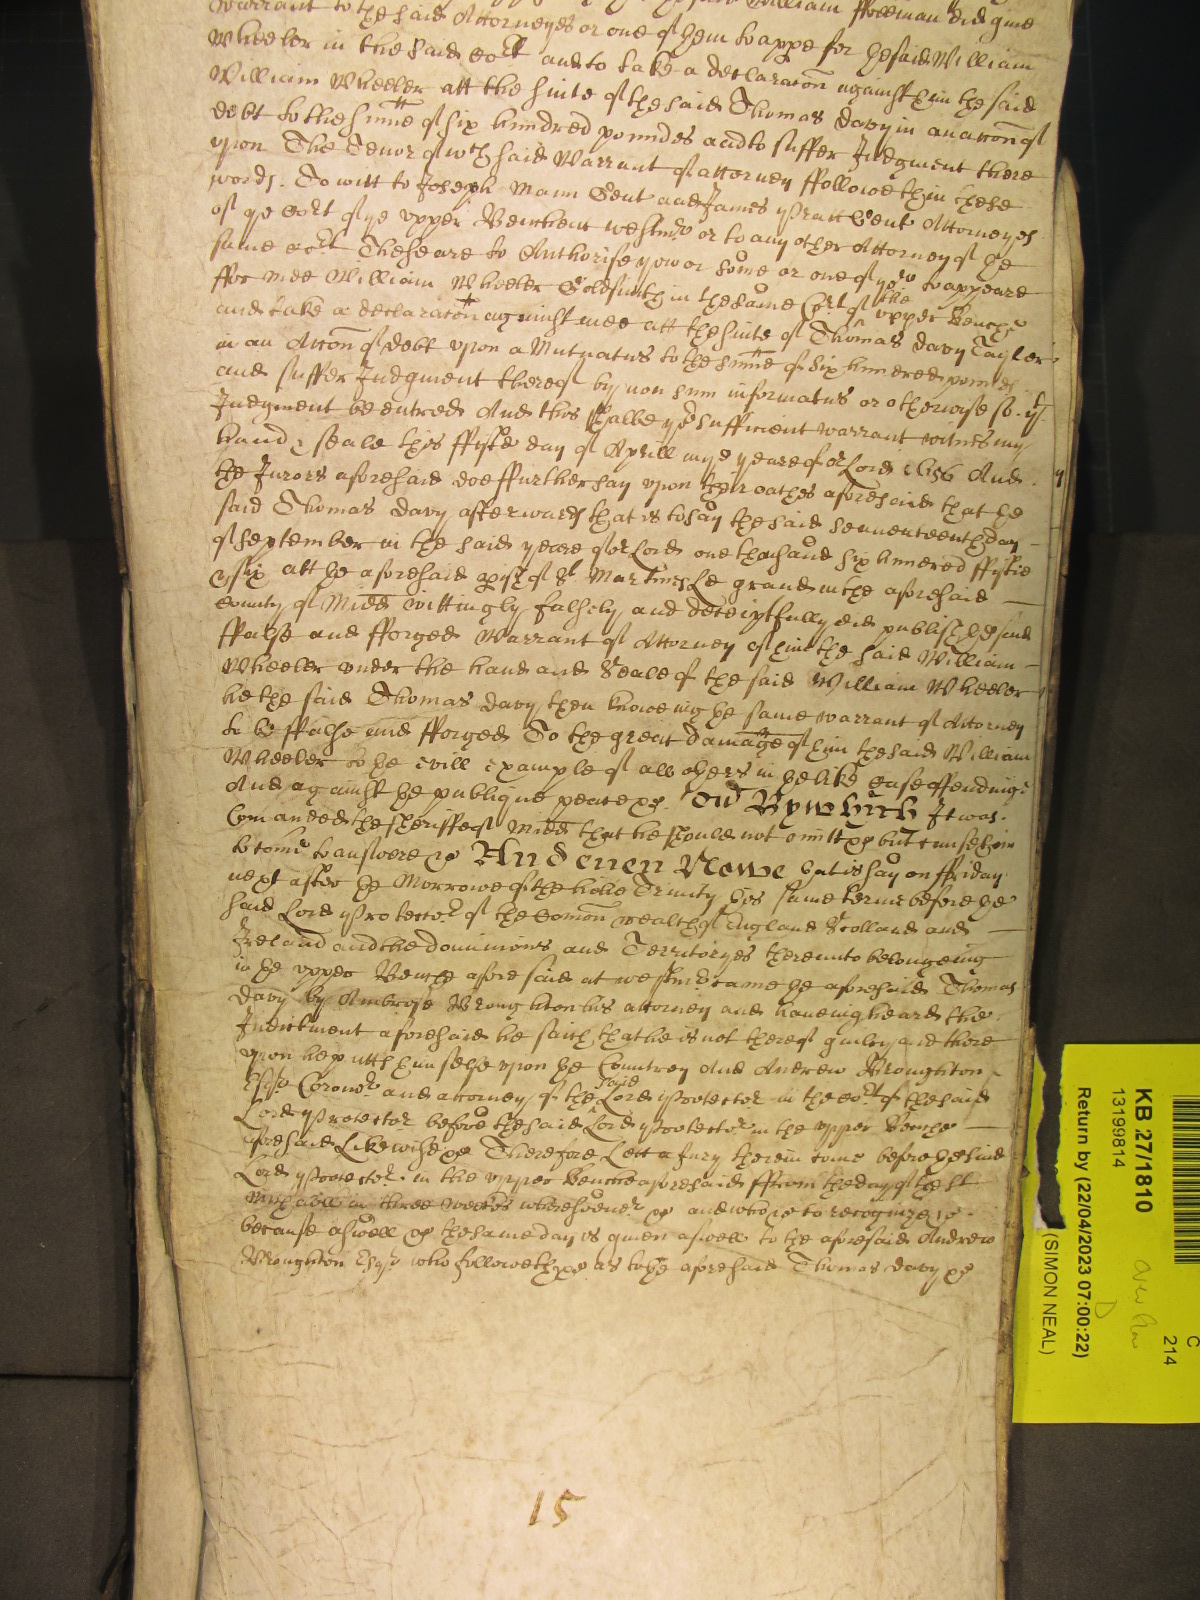 warrant to the said Attorneyes or one of them to appe for the said William
Wheeler in the said Cort and to take a declaracon against him the said
William Wheeler att the suite of the said Thomas Davy in an accon of
debt to the summe of six hundred poundes and to suffer Judgment there
upon The Tenor of wch said Warrant of attorney ffolloweth in these
words. To witt to Joseph Mann Gent and James Pratt Gent Attorneyes
of ye Cort of ye upper Bench att westmr or to any other Attorney of the
same Cort These are to Authorise yow or some or one of yow to appeare
ffor mee William Wheeler Goldsmith in the same Cort of the upper Benche
and take a declaracon against mee att the suite of Thomas Davy Tayler
in an Accon of debt upon a Mutuatus to the summe of six hundred poundes
and suffer Judgment thereof by non sum informatus or otherwise so. yt
Judgment be entred And this shalbe yor sufficient warrant witnes my
hand & seale this ffifte day of Aprill in ye yeare of or Lord 1656 And
the Jurors aforesaid doe ffurther say upon their oathes aforesaid that the
said Thomas Davy afterwards that is to say the said seaventeenth day
of September in the said yeare of or Lord one thousand six hundred ffiftie
& six att the aforesaid pish of St Martins Le grand in the aforesaid
County of Midd wittingly falsely and deceiptfully did publish the said
ffalse and fforged Warrant of Attorney of him the said William
Wheeler under the hand and Seale of the said William Wheeler
he the said Thomas Davy then knoweing the same warrant of Attorney
to be ffalse and fforged To the great damage of him the said William
Wheeler to the evill example of all others in the like case offending
And against the publique peace &c. By which It was
Comanded the sheriffe of Midd that he should not omitt &c but cause him
to come to answere &c Andenen Nowe that is say on ffriday
next after the Morrowe of the holie Trinity this same terme before the
said Lord Protector of the Comon wealth of England Scotland and
Ireland and the dominions and Territoryes thereunto belongeing
in the upper Benche aforesaid at westmr came the aforesaid Thomas
Davy by Ambrose Wroughton his attorney and haveing heard the
Indictment aforesaid he saith that he is not thereof guilty and there
upon he putth himselfe upon the Countrey And Andrew Broughton
Esqr Coronor and attorney of the said Lord Protector in the Cort of the said
Lord Protector before the said Lord Protector in the upper Benche
aforesaid Likewise &c Therefore Lett a Jury therein come before the said
Lord Protector in the upper Benche aforesaid ffrom the day of the St
Michaell in three weekes wheresoever &c and who &c to recognize &c
because aswell &c the same day is given aswell to the aforesaid Andrew
Broughton Esqr who followeth &c as to the aforesaid Thomas Davy &c
15
KB 27/1810
13199814
Return by (22/04/2023 07:00:22)
(SIMON NEAL)
C
214
D